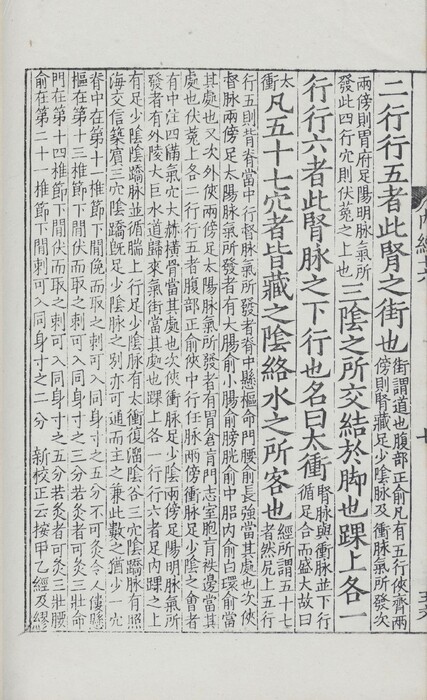 二行行五者此腎之街也
街謂道也腹部正俞凡有五行俠齊兩
傍則腎藏足少陰脉及衝脉所發次
兩傍則胃府足陽明脉氣所
發此四行穴則伏菟之上也
三陰之所交結於脚也踝上各一
行行六者此腎脉之下行也名曰太衝
腎脉與衝脉並下行
循足合而盛大故曰
太
衝
凡五十七穴者皆藏之陰絡水之所客也
經所謂五十七
者然尻上五行
行五則背脊當中行督脉氣所發者脊中懸樞命門腰俞長強當其處也次俠
督脉兩傍足太陽脉氣所發者有大腸俞小腸俞膀胱俞中䏚内俞白環俞當
其處也又次外俠兩傍足太陽脉氣所發者有胃倉肓門志室胞肓秩邊當其
處也伏菟上各二行行五者腹部正俞俠中行任脉兩傍衝脉足少陰之會者
有中注四滿氣穴大赫橫骨當其處也次俠衝脉足少陰兩傍足陽明脉氣所
發者有外陵大巨水道歸來氣街當其處也踝上各一行行六者足内踝之上
有足少陰陰蹻脉並循腨上行足少陰脉有太衝復溜陰谷三穴陰蹻脉有照
海交信築賓三穴陰蹻既足少陰脉之別亦可通而主之兼此數之猶少一穴
脊中在第十一椎節下閒俛而取之刺可入同身寸之五分不可灸令人僂懸
樞在第十三椎節下閒伏而取之刺可入同身寸之三分若灸者可灸三壯命
門在第十四椎節下閒伏而取之刺可入同身寸之五分若灸者可灸三壯腰
俞在第二十一椎節下閒刺可入同身寸之二分 新校正云按甲乙經及繆